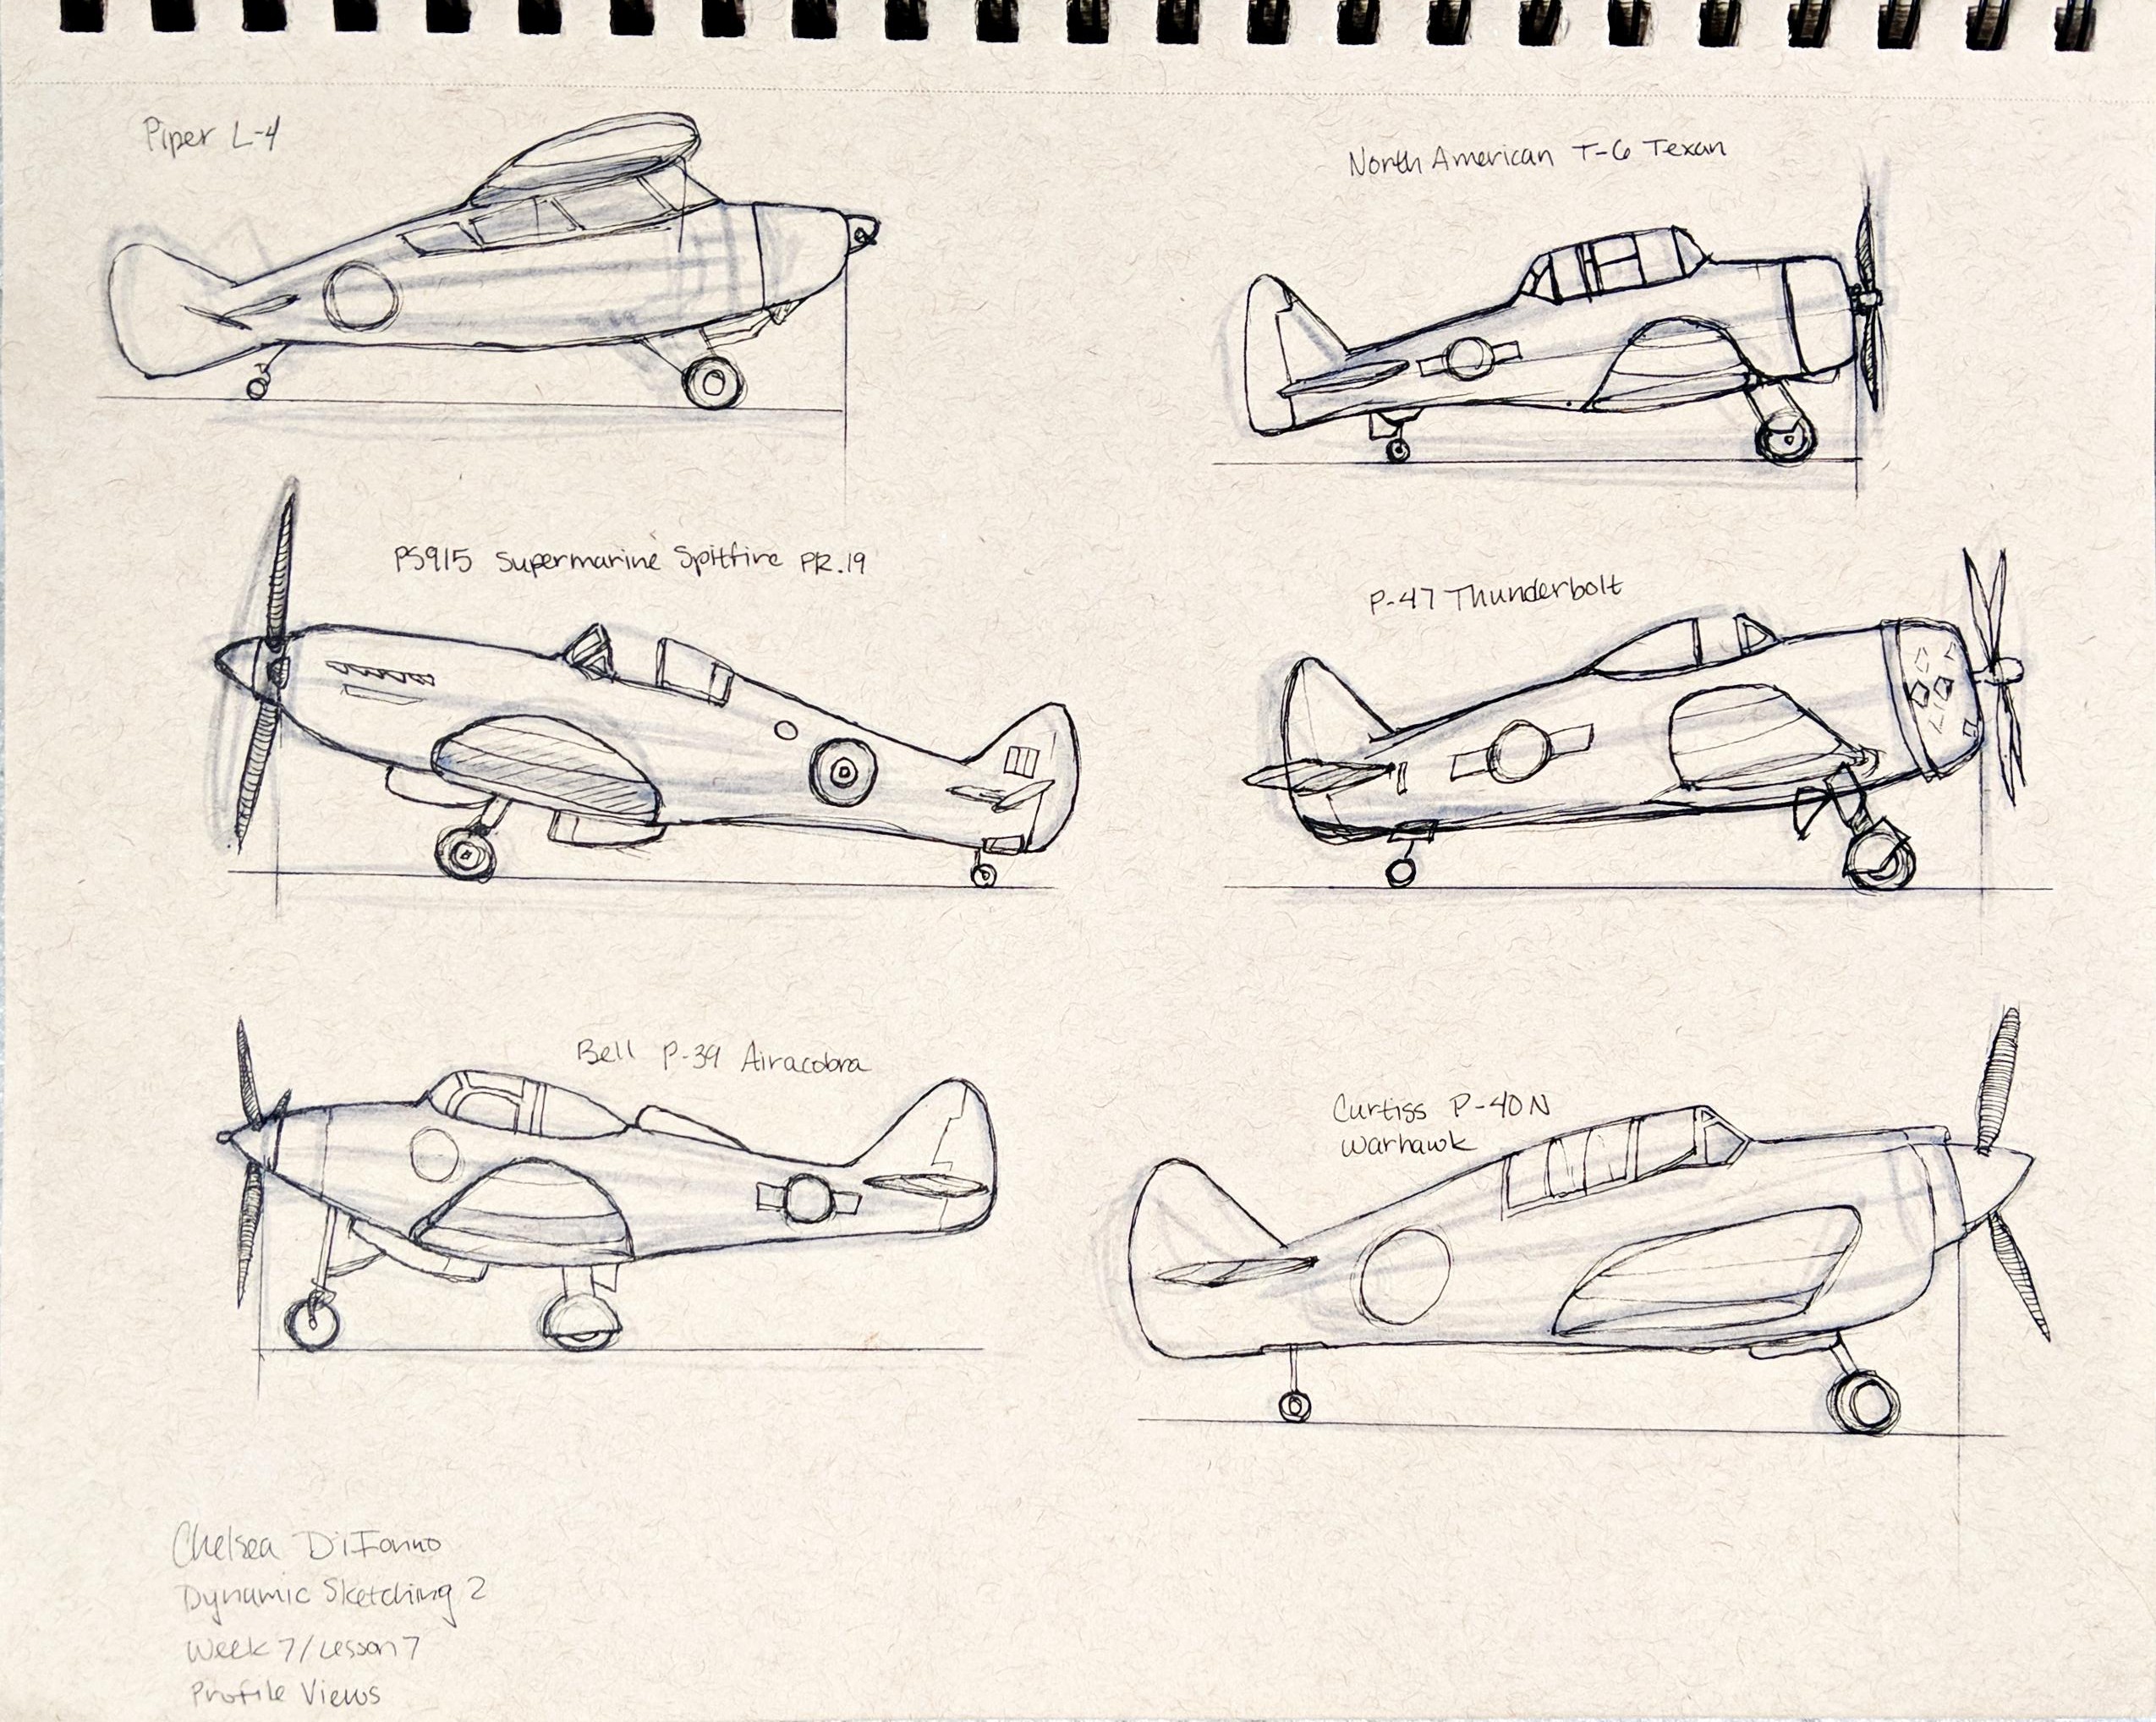 Piper L-4
North American T-6 Texan
PS915 Supermarine Spitfire PR.19
P-47 Thunderbolt
Bell P-39 Airacobra
Curtiss P-40N
Warhawk
Chelsea
Dynamic Sketching 2
Week 7/Lesson 7
Profile Views